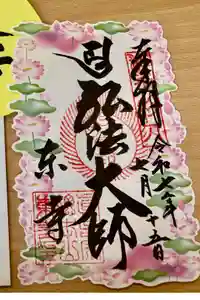 奉拝
令和六年六月十五日
弘法大師
東寺